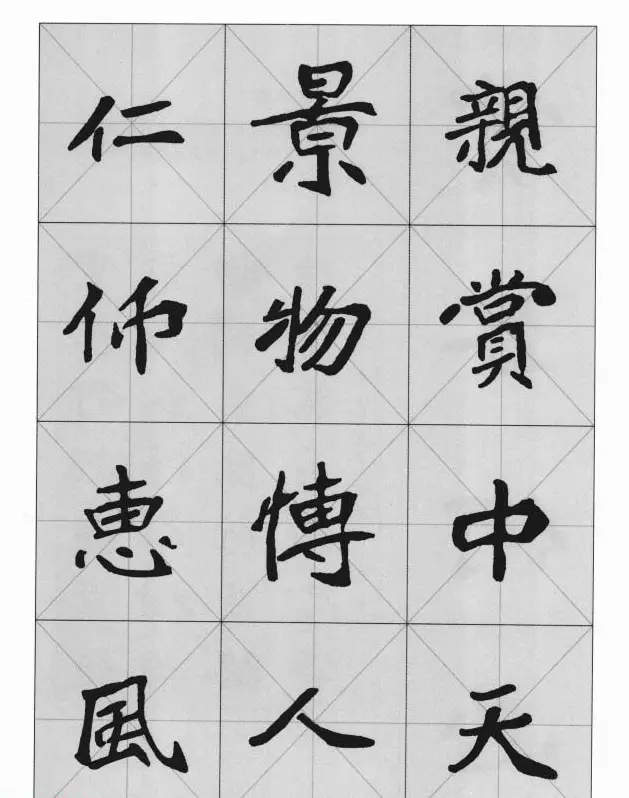 親賞中天
景物愽人
仁仰惠風